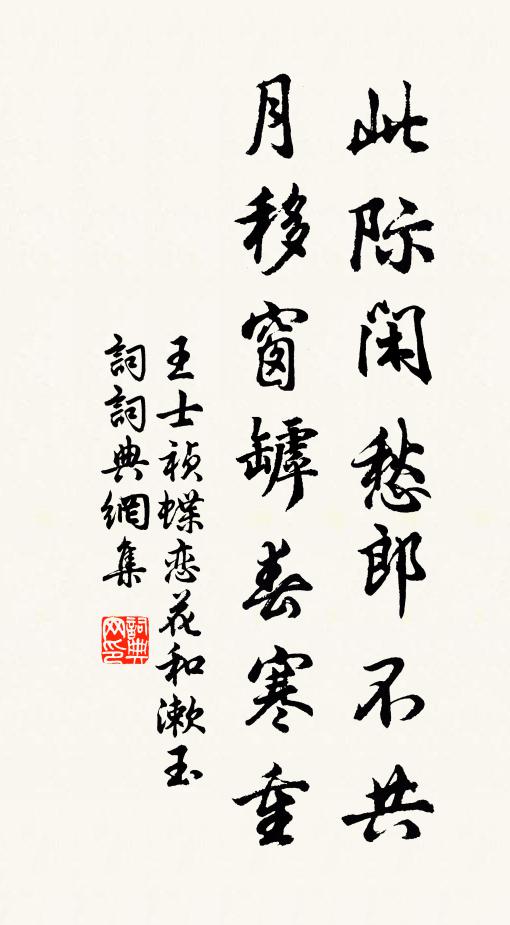 此际闲愁郎不共
月移窗罅春寒重
王士祯蝶恋花和漱玉
詞詞典網集
詞典网印